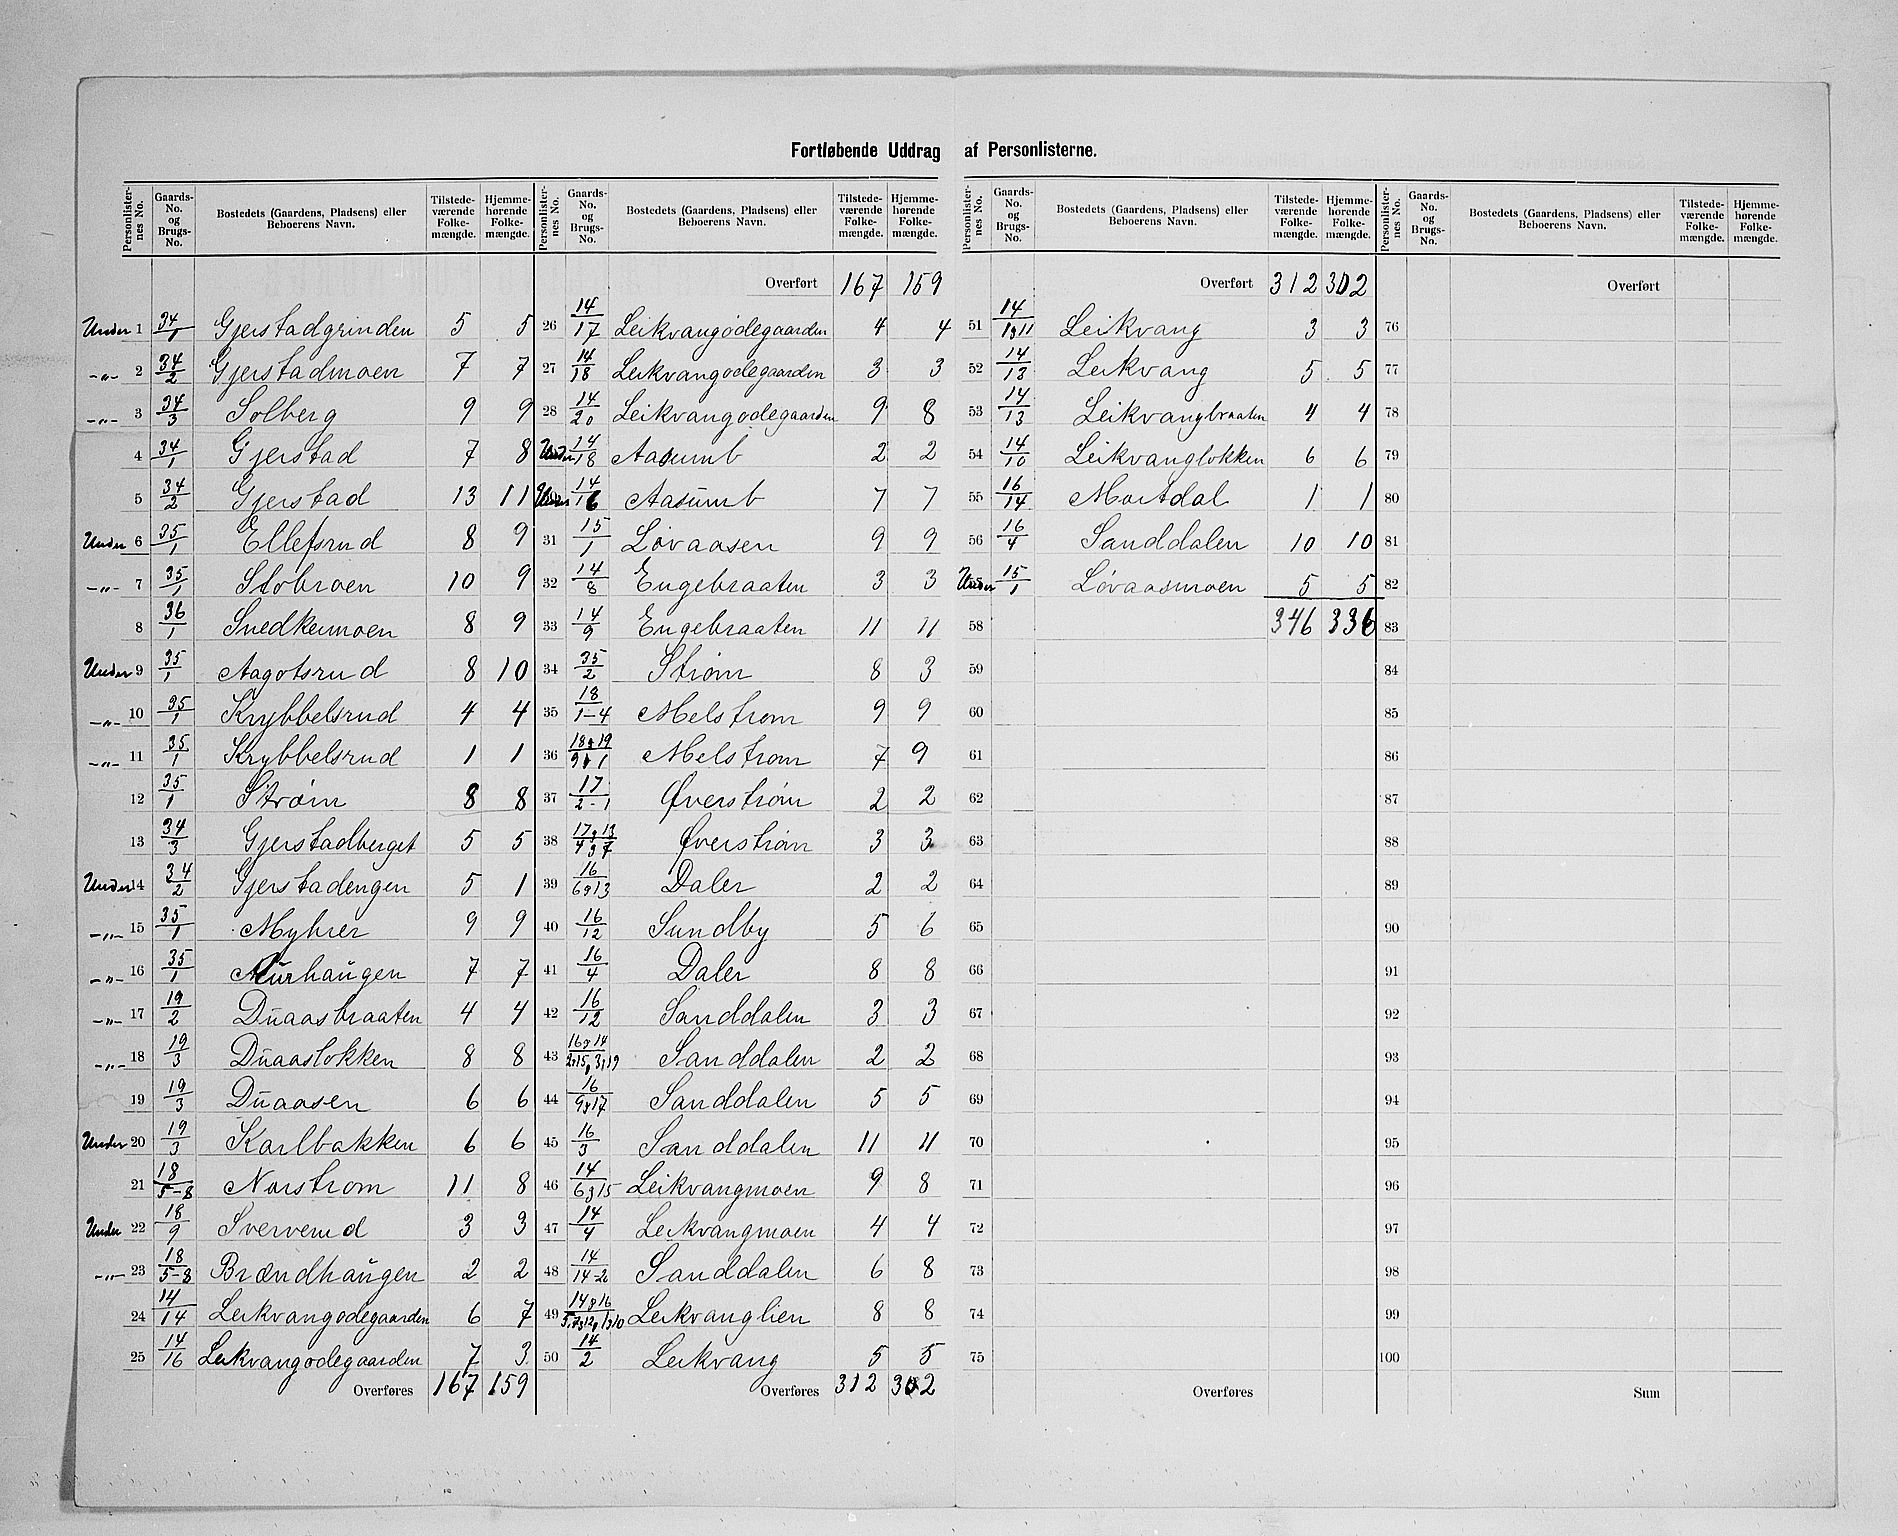 Fortløbende Uddrag af Personlisterne.
Personlisternes No. Gaards-No. og Brugs-No. Bostedets (Gaardens, Pladsens) eller Beboerens Navn. Tilstedeværende Folkemængde. Hjemmehørende Folkemængde.
Under 1 34/1 Gjerstadgrinden 5 5
-"- 2 34/2 Gjerstadmoen 7 7
-"- 3 34/3 Solberg 9 9
4 34/1 Gjerstad 7 8
5 34/2 Gjerstad 13 11
Under 6 35/1 Ellefsrud 8 9
-"- 7 35/1 Stobroen 10 9
8 36/1 Snedkermoen 8 9
Under 9 35/1 Aagotsrud 8 10
-"- 10 35/1 Krybbelsrud 4 4
-"- 11 35/1 Krybbelsrud 1 1
12 35/1 Strøm 8 8
13 34/3 Gjerstadberget 5 5
Under 14 34/2 Gjerstadengen 5 1
-"- 15 35/1 Myhrer 9 9
-"- 16 35/1 Murhaugen 7 7
-"- 17 19/2 Duaasbraaten 4 4
-"- 18 19/3 Duaasløkken 8 8
19 19/3 Duaasen 6 6
Under 20 19/3 Karlbakken 6 6
21 18/5-8 Norstrøm 11 8
Under 22 18/9 Sververud 3 3
-"- 23 18/5-8 Brændhaugen 2 2
24 14/14 Leikvangødegaarden 6 7
25 14/16 Leikvangødegaarden 7 3
Overføres 167 159
Personlisternes No. Gaards-No. og Brugs-No. Bostedets (Gaardens, Pladsens) eller Beboerens Navn. Tilstedeværende Folkemængde. Hjemmehørende Folkemængde.
Overført 167 159
26 14/17 Leikvangødegaarden 4 4
27 14/18 Leikvangødegaarden 3 3
28 14/20 Leikvangødegaarden 9 8
Under 14/18 Aasumb 2 2
Under 14/16 Aasumb 7 7
31 15/1 Løvaasen 9 9
32 14/8 Engebraaten 3 3
33 14/9 Engebraaten 11 11
34 35/2 Strøm 8 3
35 18/1-4 Melstrøm 9 9
36 18 & 19/9 & 1 Melstrøm 7 9
37 17/2-1 Øverstrøm 2 2
38 17 & 13/4 & 7 Øverstrøm 3 3
39 16/6 & 13 Daler 2 2
40 16/12 Sundby 5 6
41 16/4 Daler 8 8
42 16/12 Sanddalen 3 3
43 16 & 14 Sanddalen 2 2
44 16/9 & 17 Sanddalen 5 5
45 16/3 Sanddalen 11 11
46 14/6 & 15 Leikvangmoen 9 8
47 14/4 Leikvangmoen 4 4
48 14/14-2 Sanddalen 6 8
49 14 & 16 Leikvanglien 8 8
50 14/2 Leikvang 5 5
Overføres 312 302
Personlisternes No. Gaards-No. og Brugs-No. Bostedets (Gaardens, Pladsens) eller Beboerens Navn. Tilstedeværende Folkemængde. Hjemmehørende Folkemængde.
Overført 312 302
51 14/1 & 11 Leikvang 3 3
52 14/13 Leikvang 5 5
53 14/13 Leikvangbraaten 4 4
54 14/10 Leikvangløkken 6 6
55 16/14 Mortdal 1 1
56 16/4 Sanddalen 10 10
Under 15/1 Løvaasmoen 5 5
58 346 336
59
60
61
62
63
64
65
66
67
68
69
70
71
72
73
74
75
Overføres
Personlisternes No. Gaards-No. og Brugs-No. Bostedets (Gaardens, Pladsens) eller Beboerens Navn. Tilstedeværende Folkemængde. Hjemmehørende Folkemængde.
Overført
76
77
78
79
80
81
82
83
84
85
86
87
88
89
90
91
92
93
94
95
96
97
98
99
100
Sum